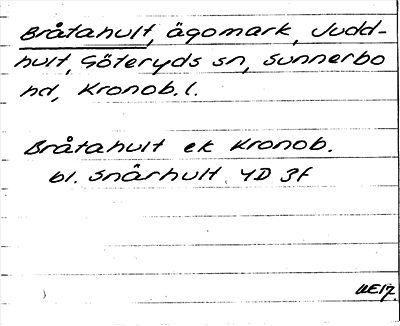 Bråtahult, ägomark, Judd-
hult, Göteryds sn, Sunnerbo
hd, Kronob. l.
Bråtahult ek Kronob.
bl. Snårhult 4D 3f